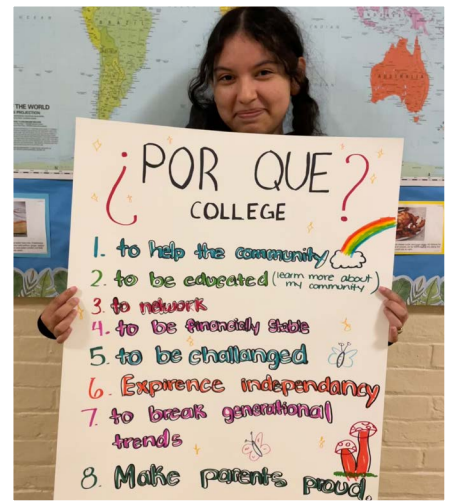 THE WORLD
AUSTRALIA
¿POR QUE?
COLLEGE
1. to help the community
2. to be educated (learn more about
my community)
3. to network
4. to be financially stable
5. to be challanged
6. Expirence independancy
7. to break generational
trends
8. Make parents proud.